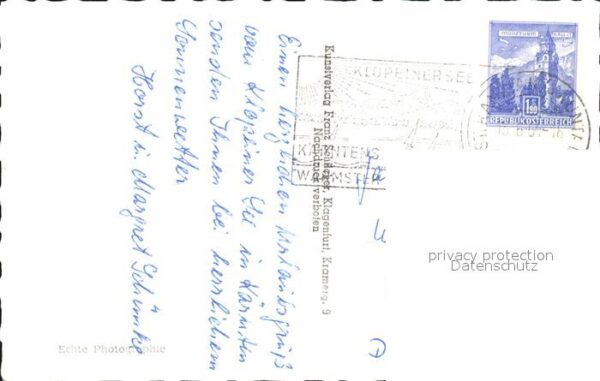 Einen herzlichen Urlaubsgruß
vom Klopeiner See in Kärnten
senden Ihnen bei herrlichem
Sonnenwetter
Horst u. Margret
Kunstverlag Franz Schilcher, Klagenfurt, Kramerg. 9
Nachdruck verboten
KLOPEINERSEE
KÄRNTENS
WÄRMSTER
MÜNZTURM
1.50
REPUBLIK ÖSTERREICH
privacy protection
Datenschutz
Echte Photographie